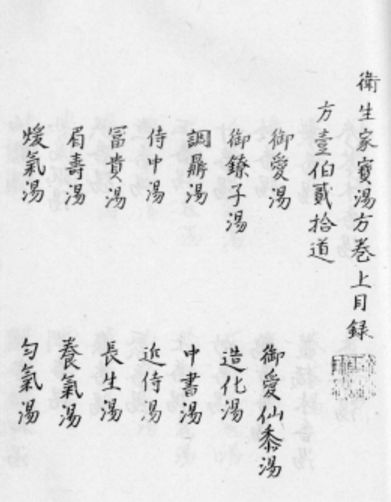 衛生家寶湯方卷上目録
方壹伯貳拾道
御愛湯　御愛仙黍湯
御鐐子湯　造化湯
調鼎湯　中書湯
侍中湯　近侍湯
冨貴湯　長生湯
眉壽湯　養氣湯
煖氣湯　勻氣湯